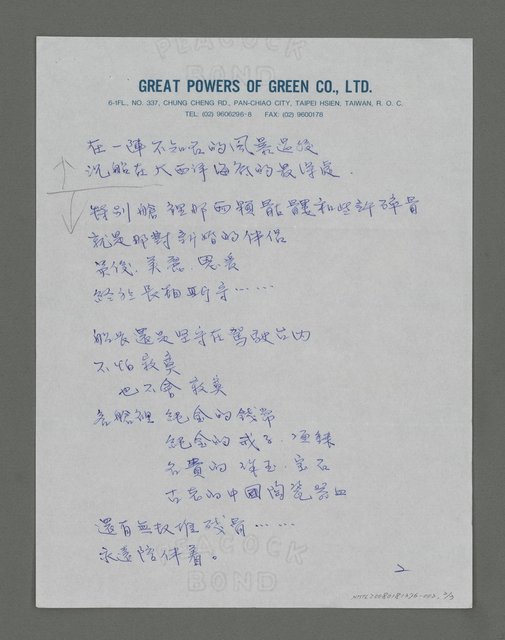 PEACOCK
BOND
GREAT POWERS OF GREEN CO., LTD.
6-1FL., NO. 337, CHUNG CHENG RD., PAN-CHIAO CITY, TAIPEI HSIEN, TAIWAN, R. O. C.
TEL: (02) 9606296-8 FAX: (02) 9600178
在一陣不知名的風暴過後
沉船在大西洋海底的最深處.
特別艙裡那兩顆骷髏和些許碎骨
就是那對新婚的伴侶
英俊.美麗.恩愛
終於長相廝守……
船長還是堅守在駕駛台內
不怕寂寞
也不會寂寞
各艙裡 純金的錢幣
純金的戒子.項鍊
名貴的珠玉.宝石
古老的中國陶瓷器皿
還有無數堆殘骨……
永遠陪伴著。
PEACOCK
BOND
2
2/3